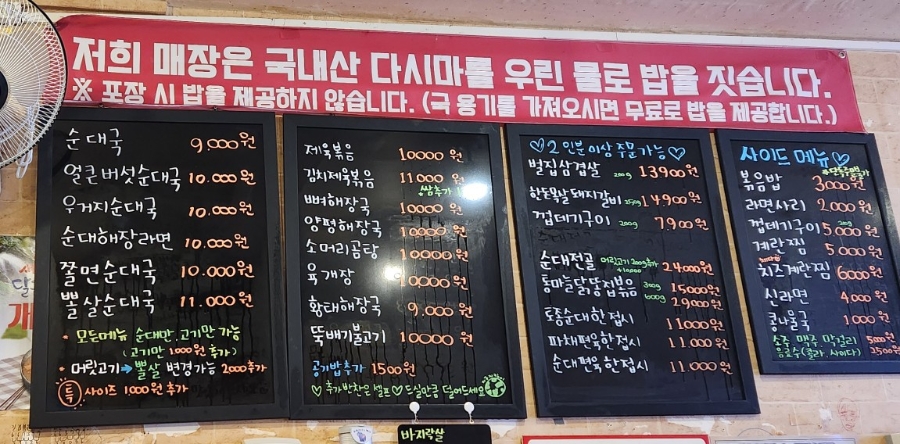 저희 매장은 국내산 다시마를 우린 물로 밥을 짓습니다.
※ 포장 시 밥을 제공하지 않습니다. (국 용기를 가져오시면 무료로 밥을 제공합니다.)
순대국 9000원
얼큰버섯순대국 10.000원
우거지순대국 10.000원
순대해장라면 10.000원
쫄면순대국 10.000원
뽈살순대국 11.000원
• 모든메뉴 순대만, 고기만 가능
(고기만 1000원 추가)
• 머릿고기→뽈살 변경가능 2000추가
특 사이즈 1000원 추가
제육볶음 10000원
김치제육볶음 11000원
쌈추가
뼈해장국 10000원
양평해장국 10000원
소머리곰탕 10000원
육개장 10000원
황태해장국 9.000원
뚝배기불고기 10000원
공기밥추가 1500원
♡추가반찬은 셀프♡ 드실만큼 덜어드세요
♡2인분 이상 주문가능♡
벌집삼겹살 200g 13900원
한돈목살돼지갈비 250g 14900원
껍데기구이 200g 7900원
순대전골 머릿고기 200g추가 +10000 24000원
통마늘닭똥집볶음 300g 15000원
600g 29000원
토종순대한접시 11000원
파채편육한접시 11.000원
순대편육한접시 11.000원
사이드 메뉴♡
볶음밥 3000원
라면사리 2.000원
껍데기구이 200g 5000원
계란찜 5.000원
치즈계란찜 6000원
신라면 4000원
콩나물국 1000원
소주 맥주 막걸리 5000원
음료수(콜라, 사이다) 2500원
바지락살